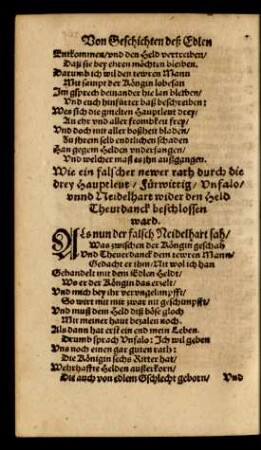 Von Geschichten deß Edlen
Entkommen/vnd den Held vertreiben/
Daß sie bey ehren möchten bleiben.
Darumb ich wil den tewren Mann
Mit sampt der Königin lobesan
Im gsprech beinander hie lan bleiben/
Vnd euch hinfürter baß beschreiben:
Wes sich die gmelten Hauptleut drey/
An ehr vnd aller frombkeit frey/
Vnd doch mit aller boßheit bladen/
Zu jhrem selb endtlichen schaden
Han gegem Helden vnderfangen/
Vnd welcher maß es jhn außgangen.
Wie ein falscher newer rath durch die
drey Hauptleut / Fürwittig/ Vnfalo/
vnnd Neidelhart wider den Held
Theurdanck beschlossen
ward.
Als nun der falsch Neidelhart sah/
Was zwischen der Köngin geschah
Vnd Theuerdanck dem tewren Mann/
Gedacht er jhm: Mit wol ich han
Gehandelt mit dem Edlen Heldt/
Wo er der Köngin das erzelt/
Vnd mich bey jhr verunglimpfft/
So wirt mit mir zwar nit geschimpfft/
Vnd muß dem Held diß böse gloch
Mit meiner haut bezalen noch.
Als dann hat erst ein end mein Leben.
Drumb sprach Vnfalo: Ich wil geben
Vns noch einen gar guten rath:
Die Königin sechs Ritter hat/
Wehrhaffte Helden außerkorn/
Die auch von edlem Gschlecht geborn/
Vnd